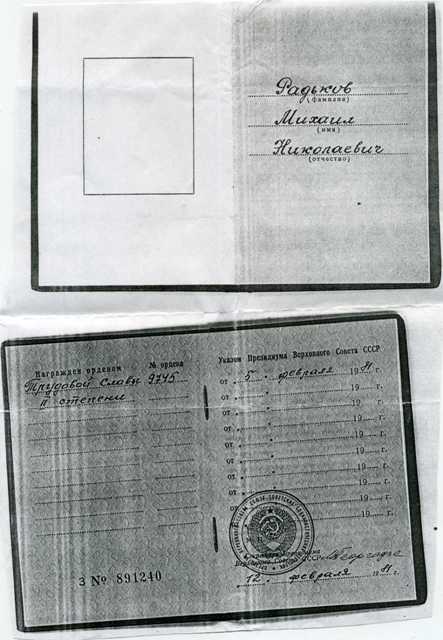 Радьков
(фамилия)
Михаил
(имя)
Николаевич
(отчество)
Награжден орденом № ордена
Трудовой Славы 9745
II степени
Указом Президиума Верховного Совета СССР
от „ 5 " февраля 1991 г.
от „ " 19 г.
от „ " 19 г.
от „ " 19 г.
от „ " 19 г.
от „ " 19 г.
от „ " 19 г.
от „ " 19 г.
от „ " 19 г.
от „ " 19 г.
З № 891240
Верховного Совета СССР
„ 12 " февраля 1991 г.